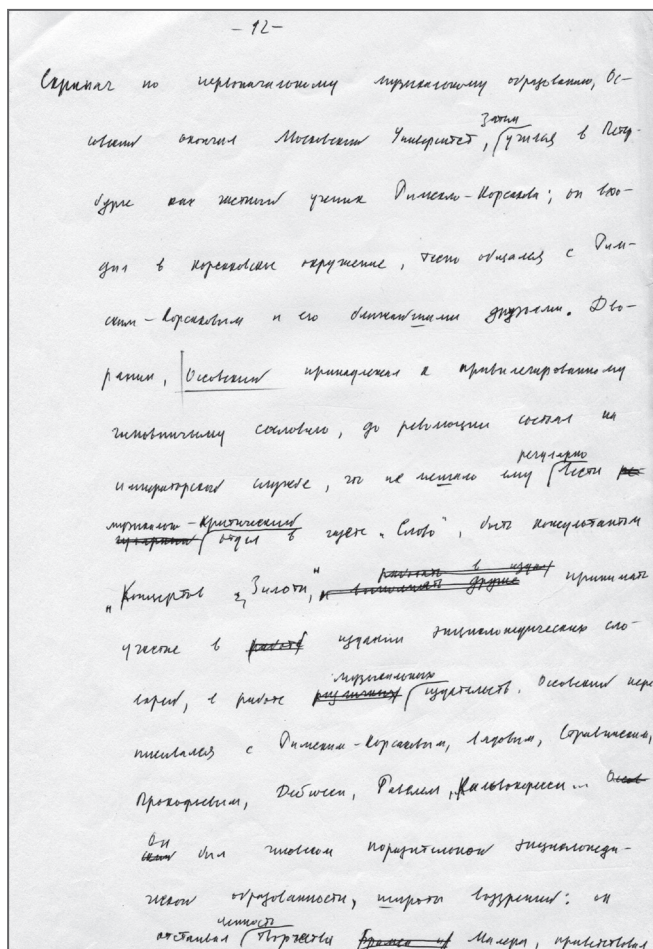 - 12 -
Скрипач по первоначальному музыкальному образованию, Ос-
совский окончил Московский Университет, затем учился в Петер-
бурге как частный ученик Римского-Корсакова; он вхо-
дил в корсаковское окружение, тесно общался с Рим-
ским-Корсаковым и его ближайшими друзьями. Дво-
рянин, Оссовский принадлежал к привилегированному
чиновничьему сословию, до революции состоял на
императорской службе, что не мешало ему регулярно вести
музыкально-критический отдел в газете „Слово“, быть консультантом
„Концертов Зилоти“, принимать
участие в издании энциклопедических сло-
варей, в работе музыкальных издательств. Оссовский пере
писывался с Римским-Корсаковым, Лядовым, Стравинским,
Прокофьевым, Дебюсси, Равелем, Кальвокоресси...
Он был человеком поразительной энциклопеди-
ческой образованности, широты воззрений: он
отстаивал ценность творчества Малера, приветствовал